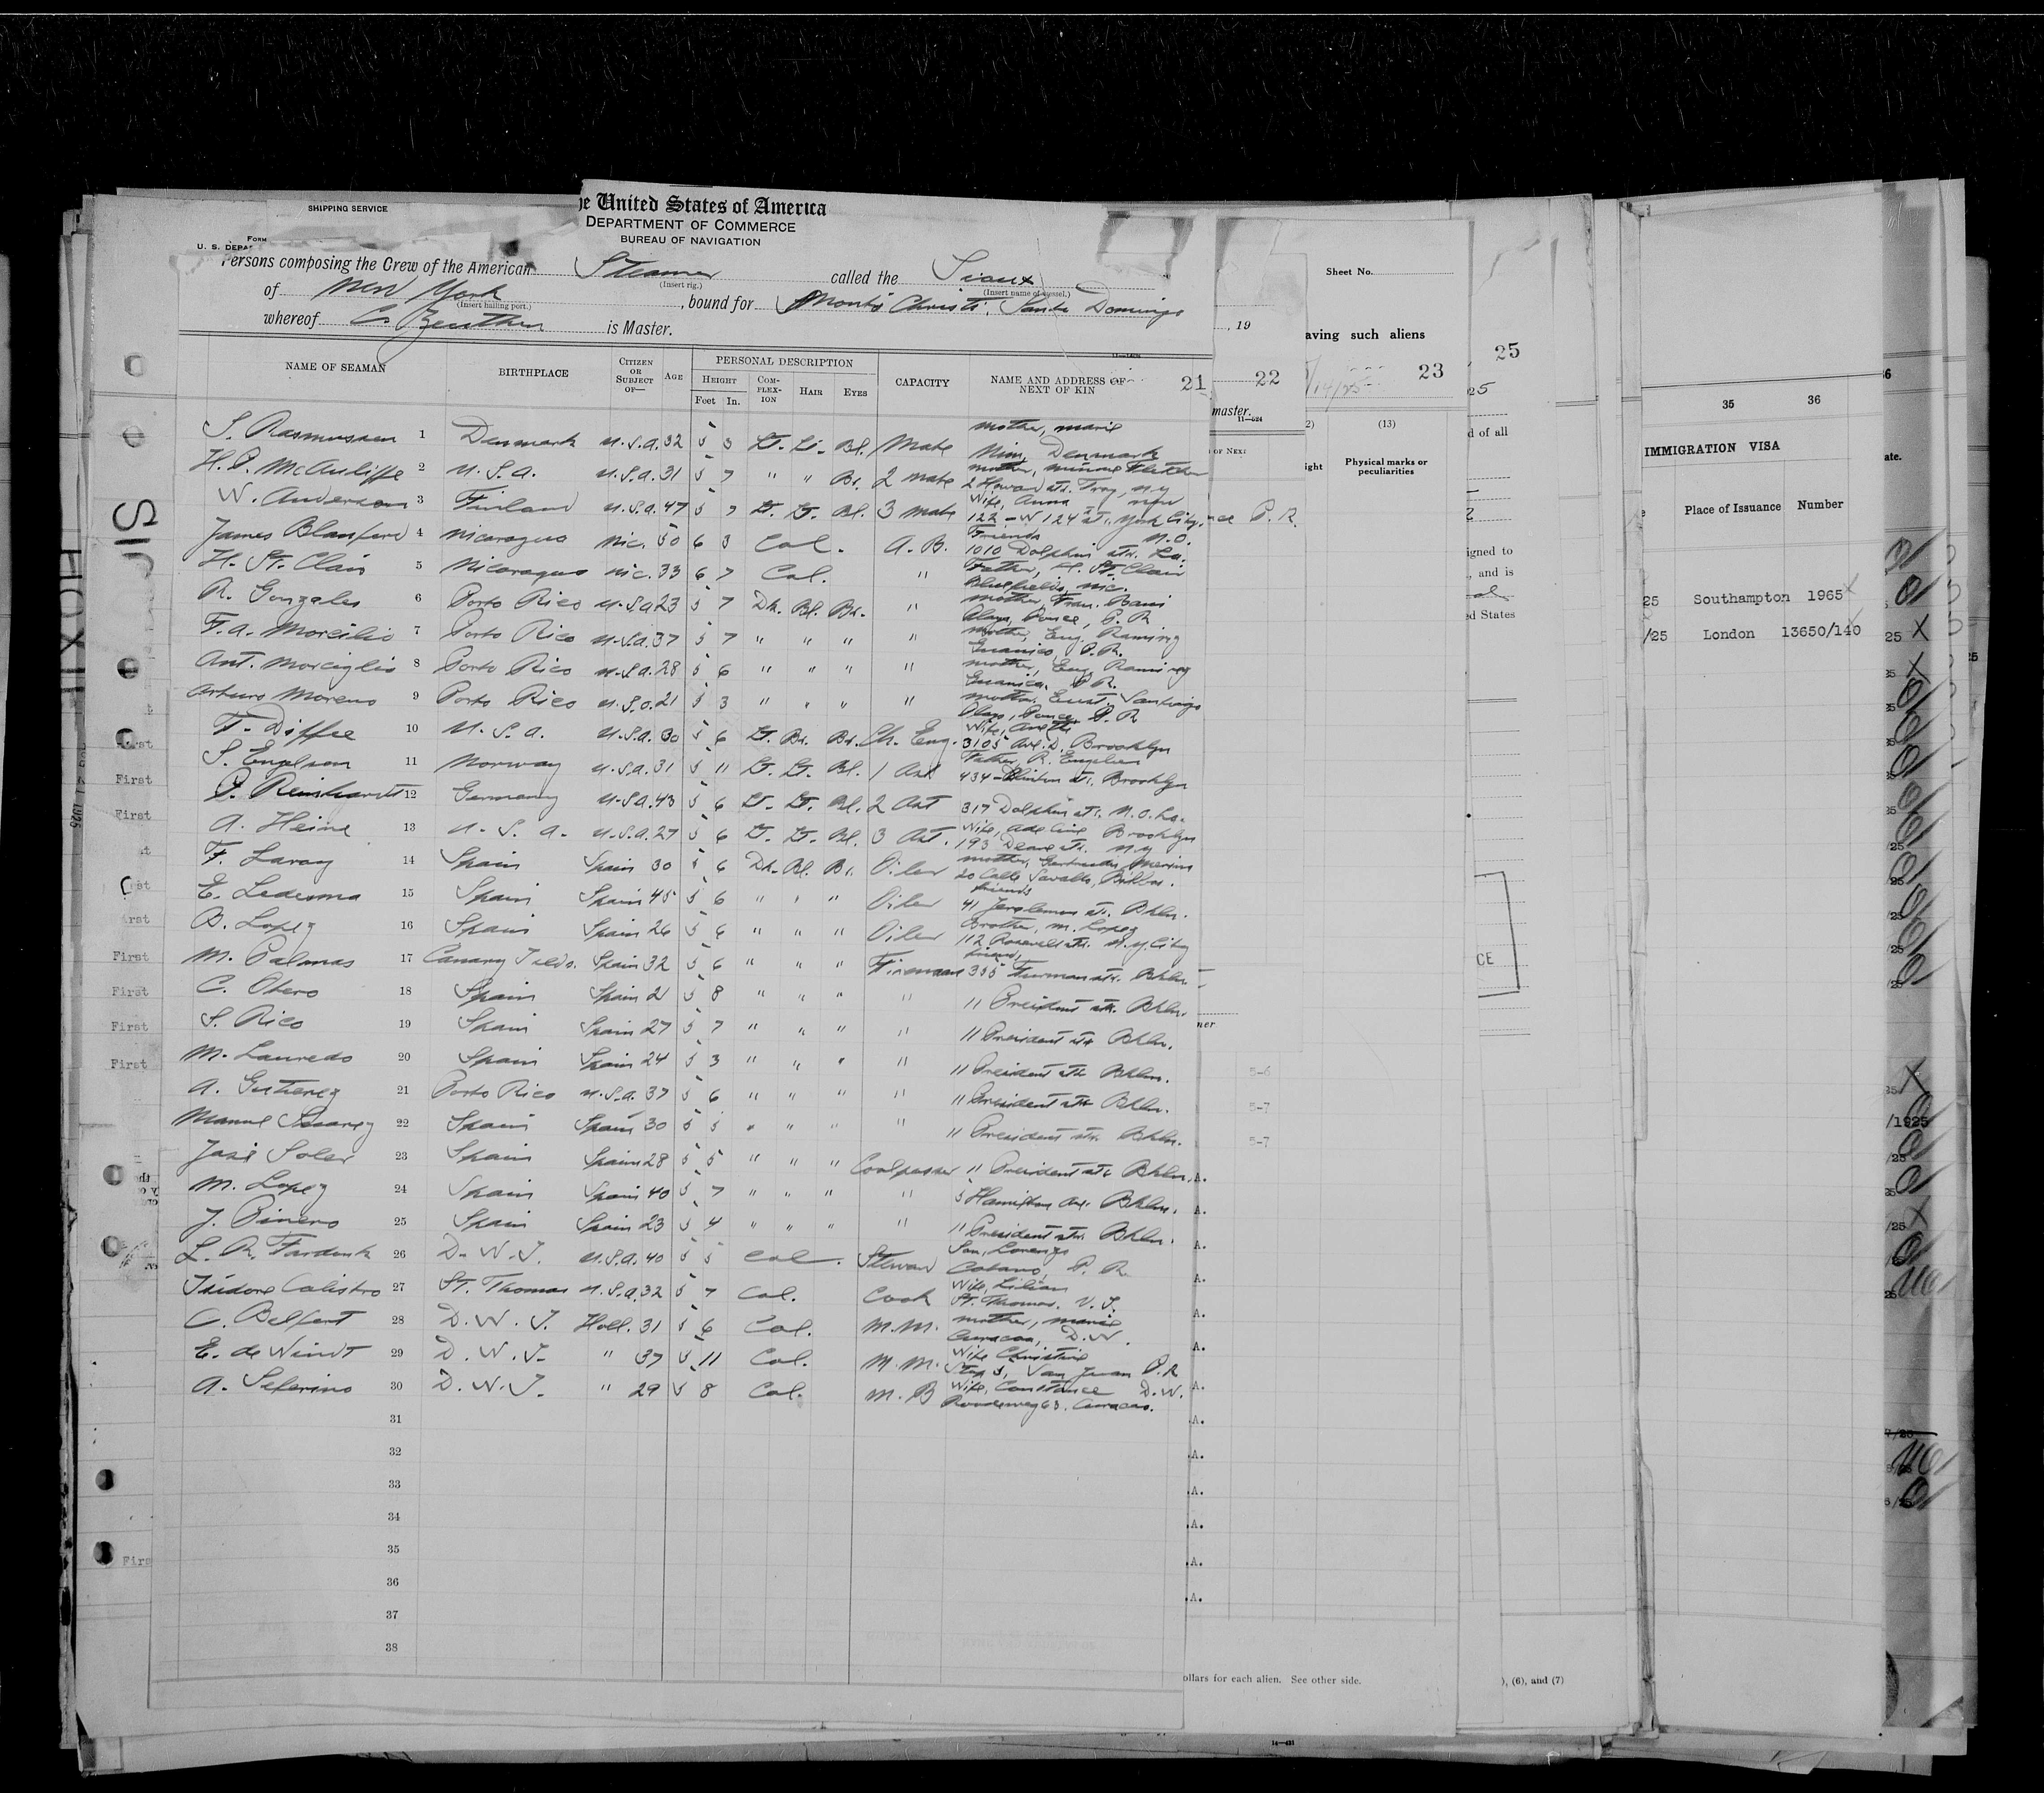 SHIPPING SERVICE
FORM
U. S. DEPA
he United States of America
DEPARTMENT OF COMMERCE
BUREAU OF NAVIGATION
Persons composing the Crew of the American Steamer called the Sioux
(Insert rig.) (Insert name of vessel.)
of New York, bound for Monte Christi, Santo Domingo
(Insert hailing port.)
whereof C. is Master.
NAME OF SEAMAN BIRTHPLACE CITIZEN OR SUBJECT OF— AGE PERSONAL DESCRIPTION CAPACITY NAME AND ADDRESS OF NEXT OF KIN 21
HEIGHT COMPLEXION HAIR EYES
Feet In.
S. Rasmussen 1 Denmark U.S.A. 32 5 3 Lt. Lt. Bl. Mate mother, marie Denmark
H. P. McAuliffe 2 U.S.A. U.S.A. 31 5 7 " " Br. 2 mate mother, 2 Howard str. Troy, N.Y
W. Anderson 3 Finland U.S.A. 47 5 7 Lt. Lt. Bl. 3 mate Wife, Anna 122 - W 124 st. New York City
James Blanford 4 Nicaragua Nic. 50 6 3 Col. A. B. Friends 1010 Dolphin str. N.O. La.
H. St. Clair 5 Nicaragua Nic. 33 6 7 Col. " Father, H. St. Clair Bluefields, Nic.
R. Gonzales 6 Porto Rico U.S.A. 23 5 7 Dk. Bl. Br. " mother, Fran. Playa, Ponce, P. R
F. A. Morcilio 7 Porto Rico U.S.A. 37 5 7 " " " " mother, Eug. Ramirez Guanica, P.R.
Ant. Morciglio 8 Porto Rico U.S.A. 28 5 6 " " " " mother, Eug. Ramirez Guanica, P R.
Arturo Moreno 9 Porto Rico U.S.A. 21 5 3 " " " " mother, Santiago Playa, Ponce, P. R
F. Diffee 10 U.S.A. U.S.A. 30 5 6 Lt. Br. Br. Ch. Eng. Wife, 3105 Ave. D. Brooklyn
S. Engelsen 11 Norway U.S.A. 31 5 11 Lt. Lt. Bl. 1 Ast Father, R. Engelsen 434 - Clinton str. Brooklyn
Reinhardt 12 Germany U.S.A. 43 5 6 Lt. Lt. Bl. 2 Ast 317 Dolphin str. N.O. La.
A. Heine 13 U.S.A. U.S.A. 27 5 6 Lt. Lt. Bl. 3 Ast. Wife, Adeline 193 Deane str. Brooklyn N.Y
F. Laray 14 Spain Spain 30 5 6 Dk. Bl. Br. Oiler mother, 20 Calle Bilbao.
E. Ledesma 15 Spain Spain 45 5 6 " " " Oiler friends 41 str. Bkln.
B. Lopez 16 Spain Spain 26 5 6 " " " Oiler Brother, M. Lopez 112 Roosevelt str. N.Y. City
M. Palmas 17 Canary Islds. Spain 32 5 6 " " " Fireman friend, 335 Furman str. Bkln.
C. Otero 18 Spain Spain 21 5 8 " " " " 11 President str. Bkln.
S. Rico 19 Spain Spain 27 5 7 " " " " 11 President str Bkln.
M. Lauredo 20 Spain Spain 24 5 3 " " " " 11 President str Bkln.
A. Gutierez 21 Porto Rico U.S.A. 37 5 6 " " " " 11 President str Bkln.
Manuel Suarez 22 Spain Spain 30 5 5 " " " " 11 President str. Bkln.
José Soler 23 Spain Spain 28 5 5 " " " Coalpasser 11 President str Bkln.
M. Lopez 24 Spain Spain 40 5 7 " " " " 5 Hamilton Ave. Bkln.
J. Pinero 25 Spain Spain 23 5 4 " " " " 11 President str. Bkln.
L. R. 26 D. W. I. U.S.A. 40 5 5 Col. Steward Son, Lorenzo Catano, P. R.
Isidore Calistro 27 St. Thomas U.S.A. 32 5 7 Col. Cook Wife, Lilian St. Thomas. V. I.
C. Belfort 28 D. W. I. Holl. 31 5 6 Col. M.M. mother, marie Curacao, D.W.
E. de Windt 29 D. W. I. " 37 5 11 Col. M.M. Wife Christine Stop 5, San Juan P.R
A. Seferino 30 D. W. I. " 29 5 8 Col. M. B Wife, Constance D.W. 63. Curacao.
31
32
33
34
35
36
37
38
, 19
22
master.
11—524
Sheet No.
aving such aliens
23
(13)
ight Physical marks or peculiarities
P. R.
25
d of all
igned to
, and is
ed States
5-6
5-7
5-7
ollars for each alien. See other side.
), (6), and (7)
35 36
IMMIGRATION VISA
Place of Issuance Number
25 Southampton 1965
/25 London 13650/140
CE
First
First
First
First
First
First
First